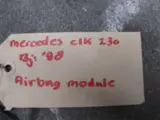 mercedes clk 230
Bj: '98
Airbag module